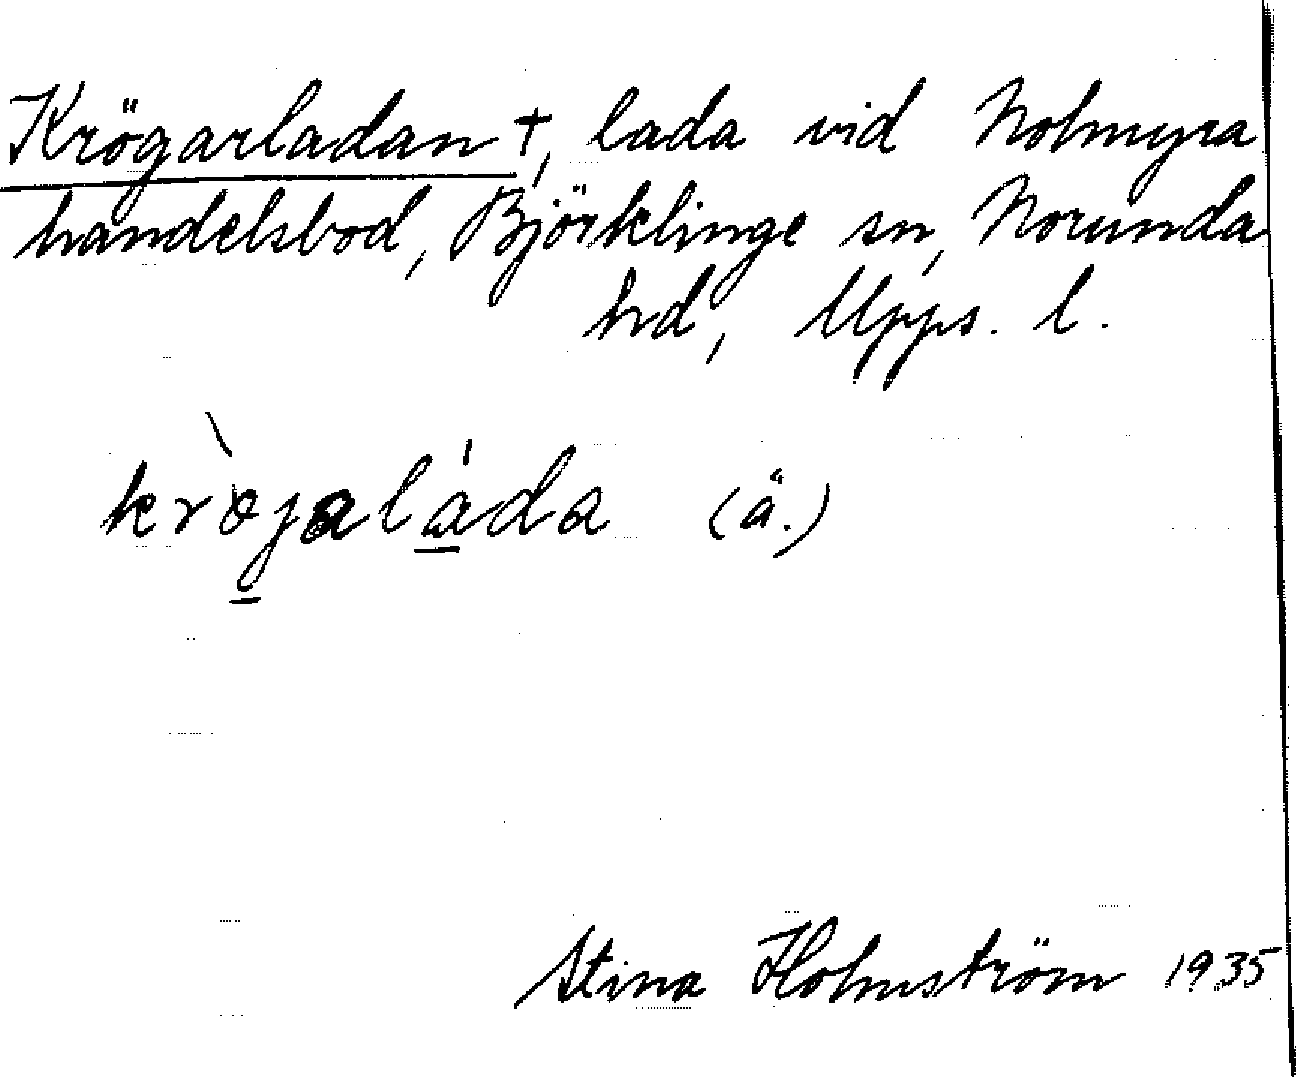 Krögarladan †, lada vid Nolmyra
handelsbod, Björklinge sn, Norunda
hd, Upps. l.
krö̀jalàda (ä.)
Stina Holmström 1935